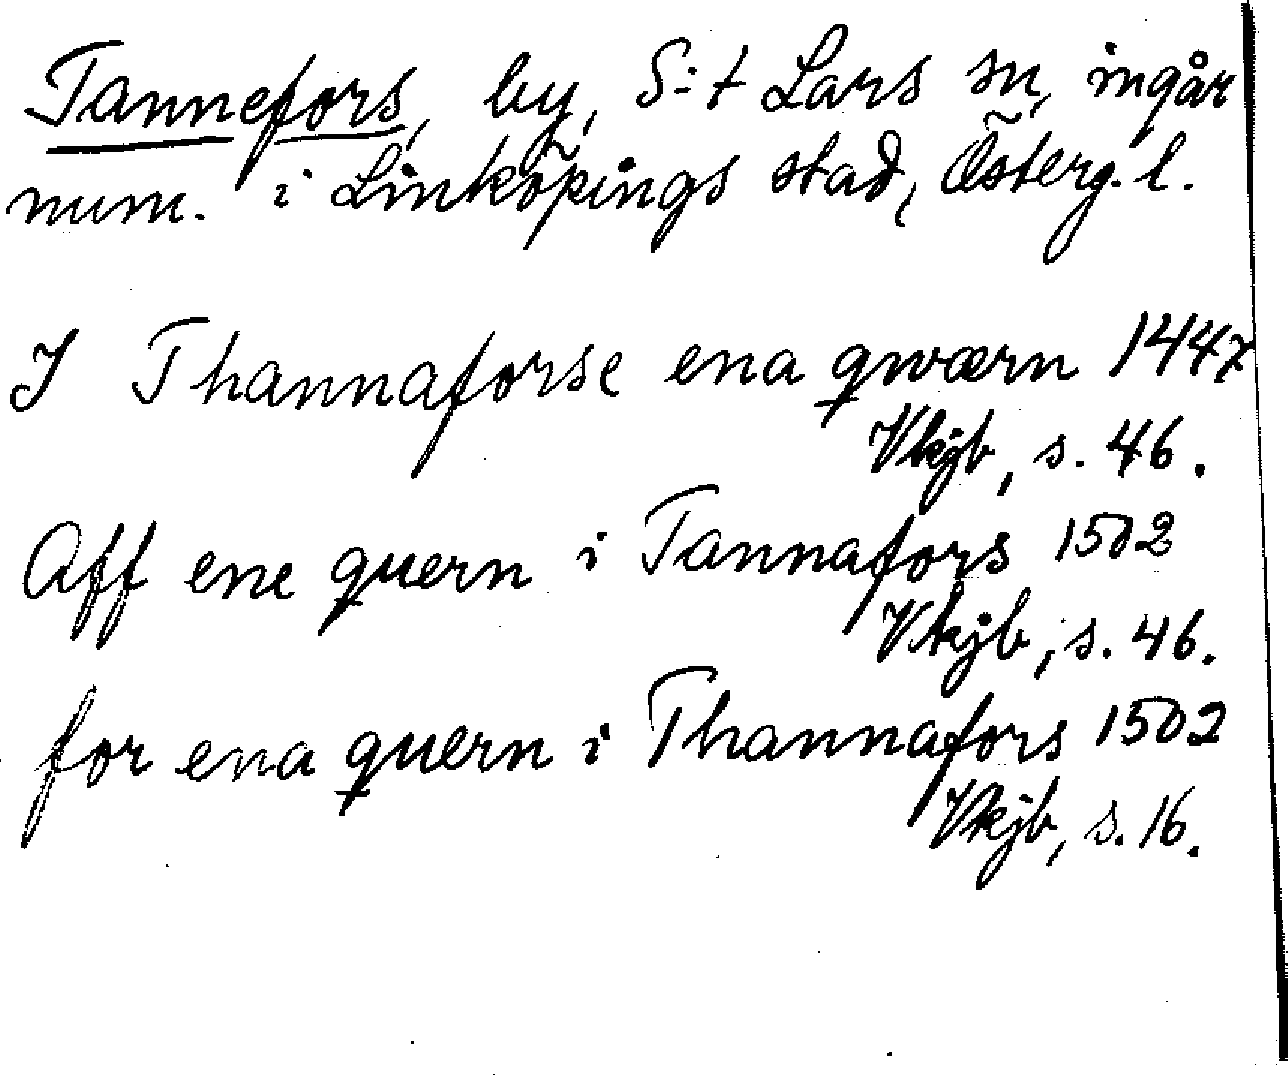 Tannefors, by, S:t Lars sn, ingår
num. i Linköpings stad, Österg. l.
I Thannaforse ena qwærn 1447
Vkjb, s. 46.
Aff ene quern i Tannafors 1502
Vkjb, s. 46.
for ena quern i Thannafors 1502
Vkjb, s. 16.